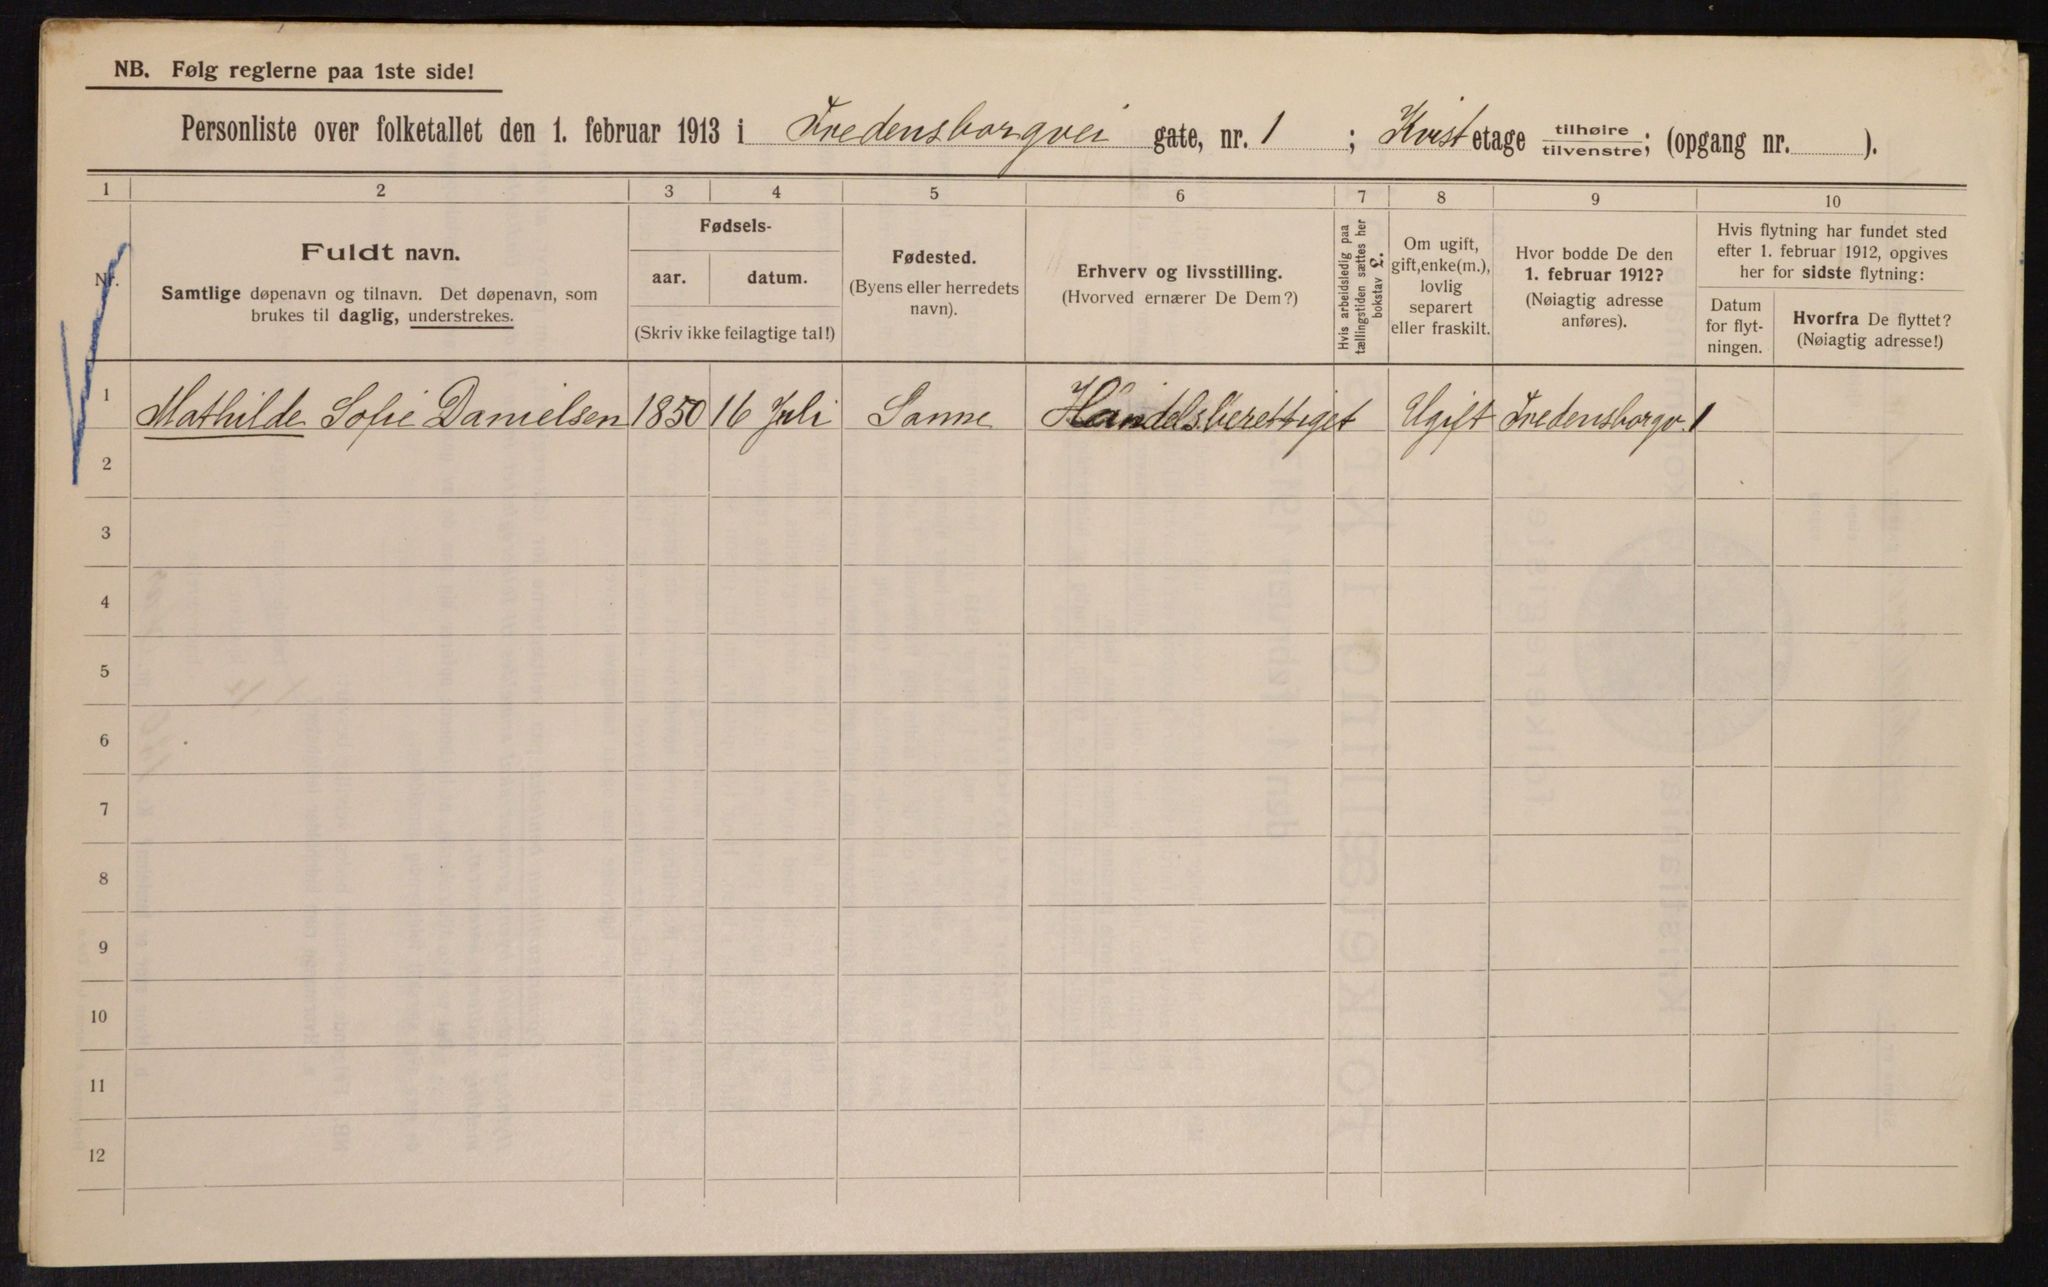 NB. Følg reglerne paa 1ste side!
Personliste over folketallet den 1. februar 1913 i Fredensborgvei gate, nr. 1 ; Kvist etage tilhøire tilvenstre; (opgang nr. ).
1 2 3 4 5 6 7 8 9 10
Nr.
Fuldt navn.
Samtlige døpenavn og tilnavn. Det døpenavn, som
brukes til daglig, understrekes.
Fødsels-
aar. datum.
(Skriv ikke feilagtige tal!)
Fødested.
(Byens eller herredets
navn).
Erhverv og livsstilling.
(Hvorved ernærer De Dem?)
Hvis arbeidsledig paa
tællingstiden sættes her
bokstav L.
Om ugift,
gift, enke(m.),
lovlig
separert
eller fraskilt.
Hvor bodde De den
1. februar 1912?
(Nøiagtig adresse
anføres).
Hvis flytning har fundet sted
efter 1. februar 1912, opgives
her for sidste flytning:
Datum
for flyt-
ningen.
Hvorfra De flyttet?
(Nøiagtig adresse!)
1 Mathilde Sofie Danielsen 1850 16 Juli Sanne Handelsberettiget Ugift Fredensborgv. 1
2
3
4
5
6
7
8
9
10
11
12